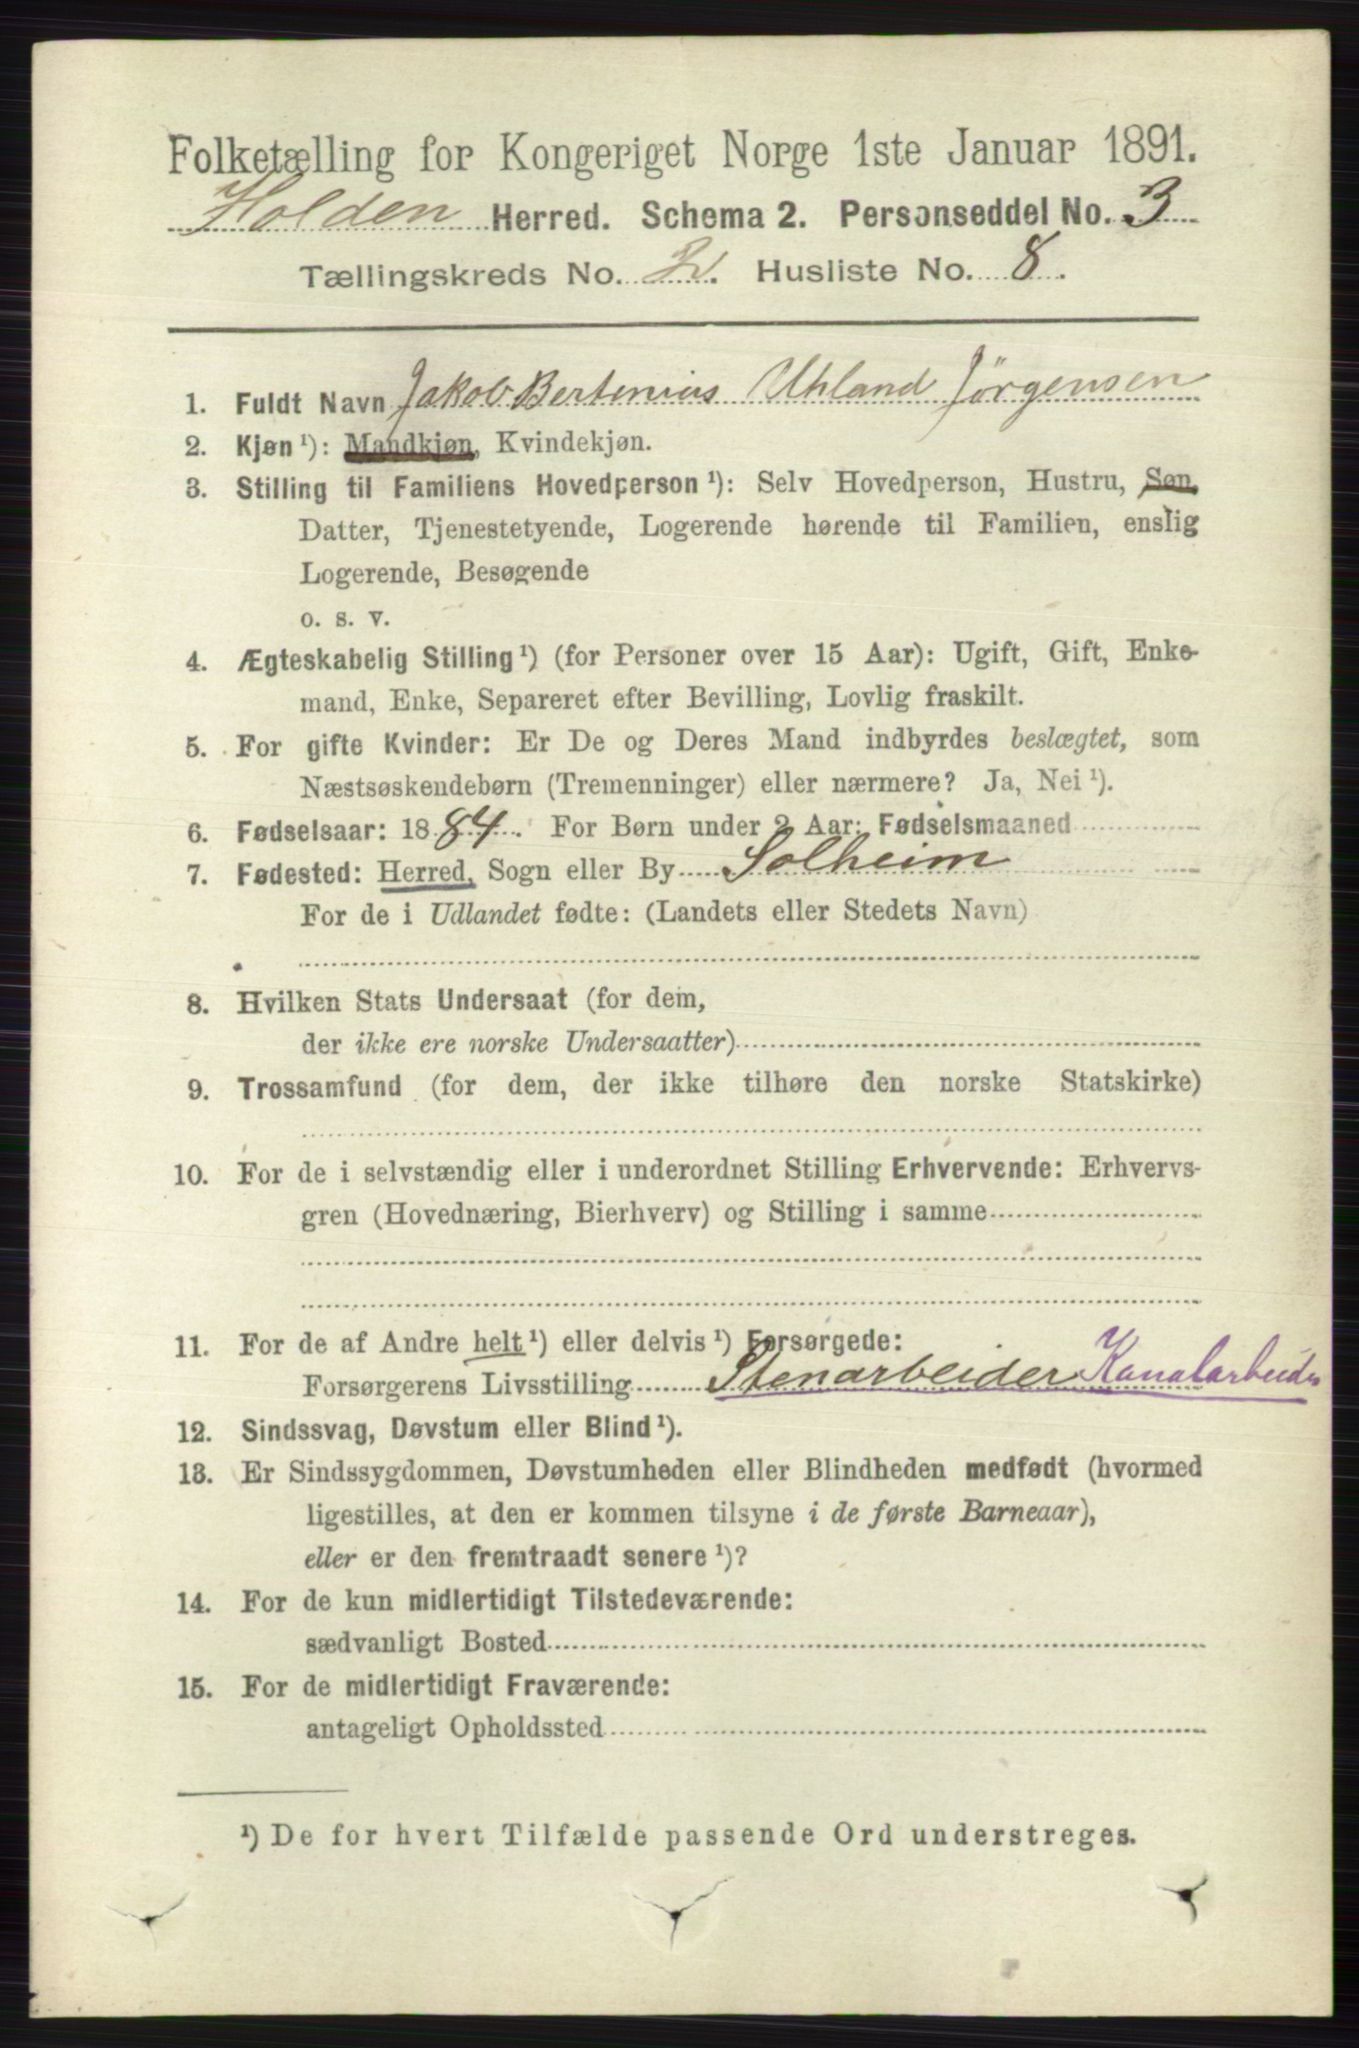 Folketælling for Kongeriget Norge 1ste Januar 1891.
Holden Herred. Schema 2. Personseddel No. 3
Tællingskreds No. 2. Husliste No. 8.
1. Fuldt Navn Jakob Bertenius Uhland Jørgensen
2. Kjøn ¹): Mandkjøn, Kvindekjøn.
3. Stilling til Familiens Hovedperson ¹): Selv Hovedperson, Hustru, Søn,
Datter, Tjenestetyende, Logerende hørende til Familien, enslig
Logerende, Besøgende
o. s. v.
4. Ægteskabelig Stilling ¹) (for Personer over 15 Aar): Ugift, Gift, Enke-
mand, Enke, Separeret efter Bevilling, Lovlig fraskilt.
5. For gifte Kvinder: Er De og Deres Mand indbyrdes beslægtet, som
Næstsøskendebørn (Tremenninger) eller nærmere? Ja, Nei ¹).
6. Fødselsaar: 1884. For Børn under 2 Aar: Fødselsmaaned
7. Fødested: Herred, Sogn eller By Solheim
For de i Udlandet fødte: (Landets eller Stedets Navn)
8. Hvilken Stats Undersaat (for dem,
der ikke ere norske Undersaatter)
9. Trossamfund (for dem, der ikke tilhøre den norske Statskirke)
10. For de i selvstændig eller i underordnet Stilling Erhvervende: Erhvervs-
gren (Hovednæring, Bierhverv) og Stilling i samme
11. For de af Andre helt ¹) eller delvis ¹) Forsørgede:
Forsørgerens Livsstilling Stenarbeider Kanalarbeider
12. Sindssvag, Døvstum eller Blind ¹).
13. Er Sindssygdommen, Døvstumheden eller Blindheden medfødt (hvormed
ligestilles, at den er kommen tilsyne i de første Barneaar),
eller er den fremtraadt senere ¹)?
14. For de kun midlertidigt Tilstedeværende:
sædvanligt Bosted
15. For de midlertidigt Fraværende:
antageligt Opholdssted
¹) De for hvert Tilfælde passende Ord understreges.